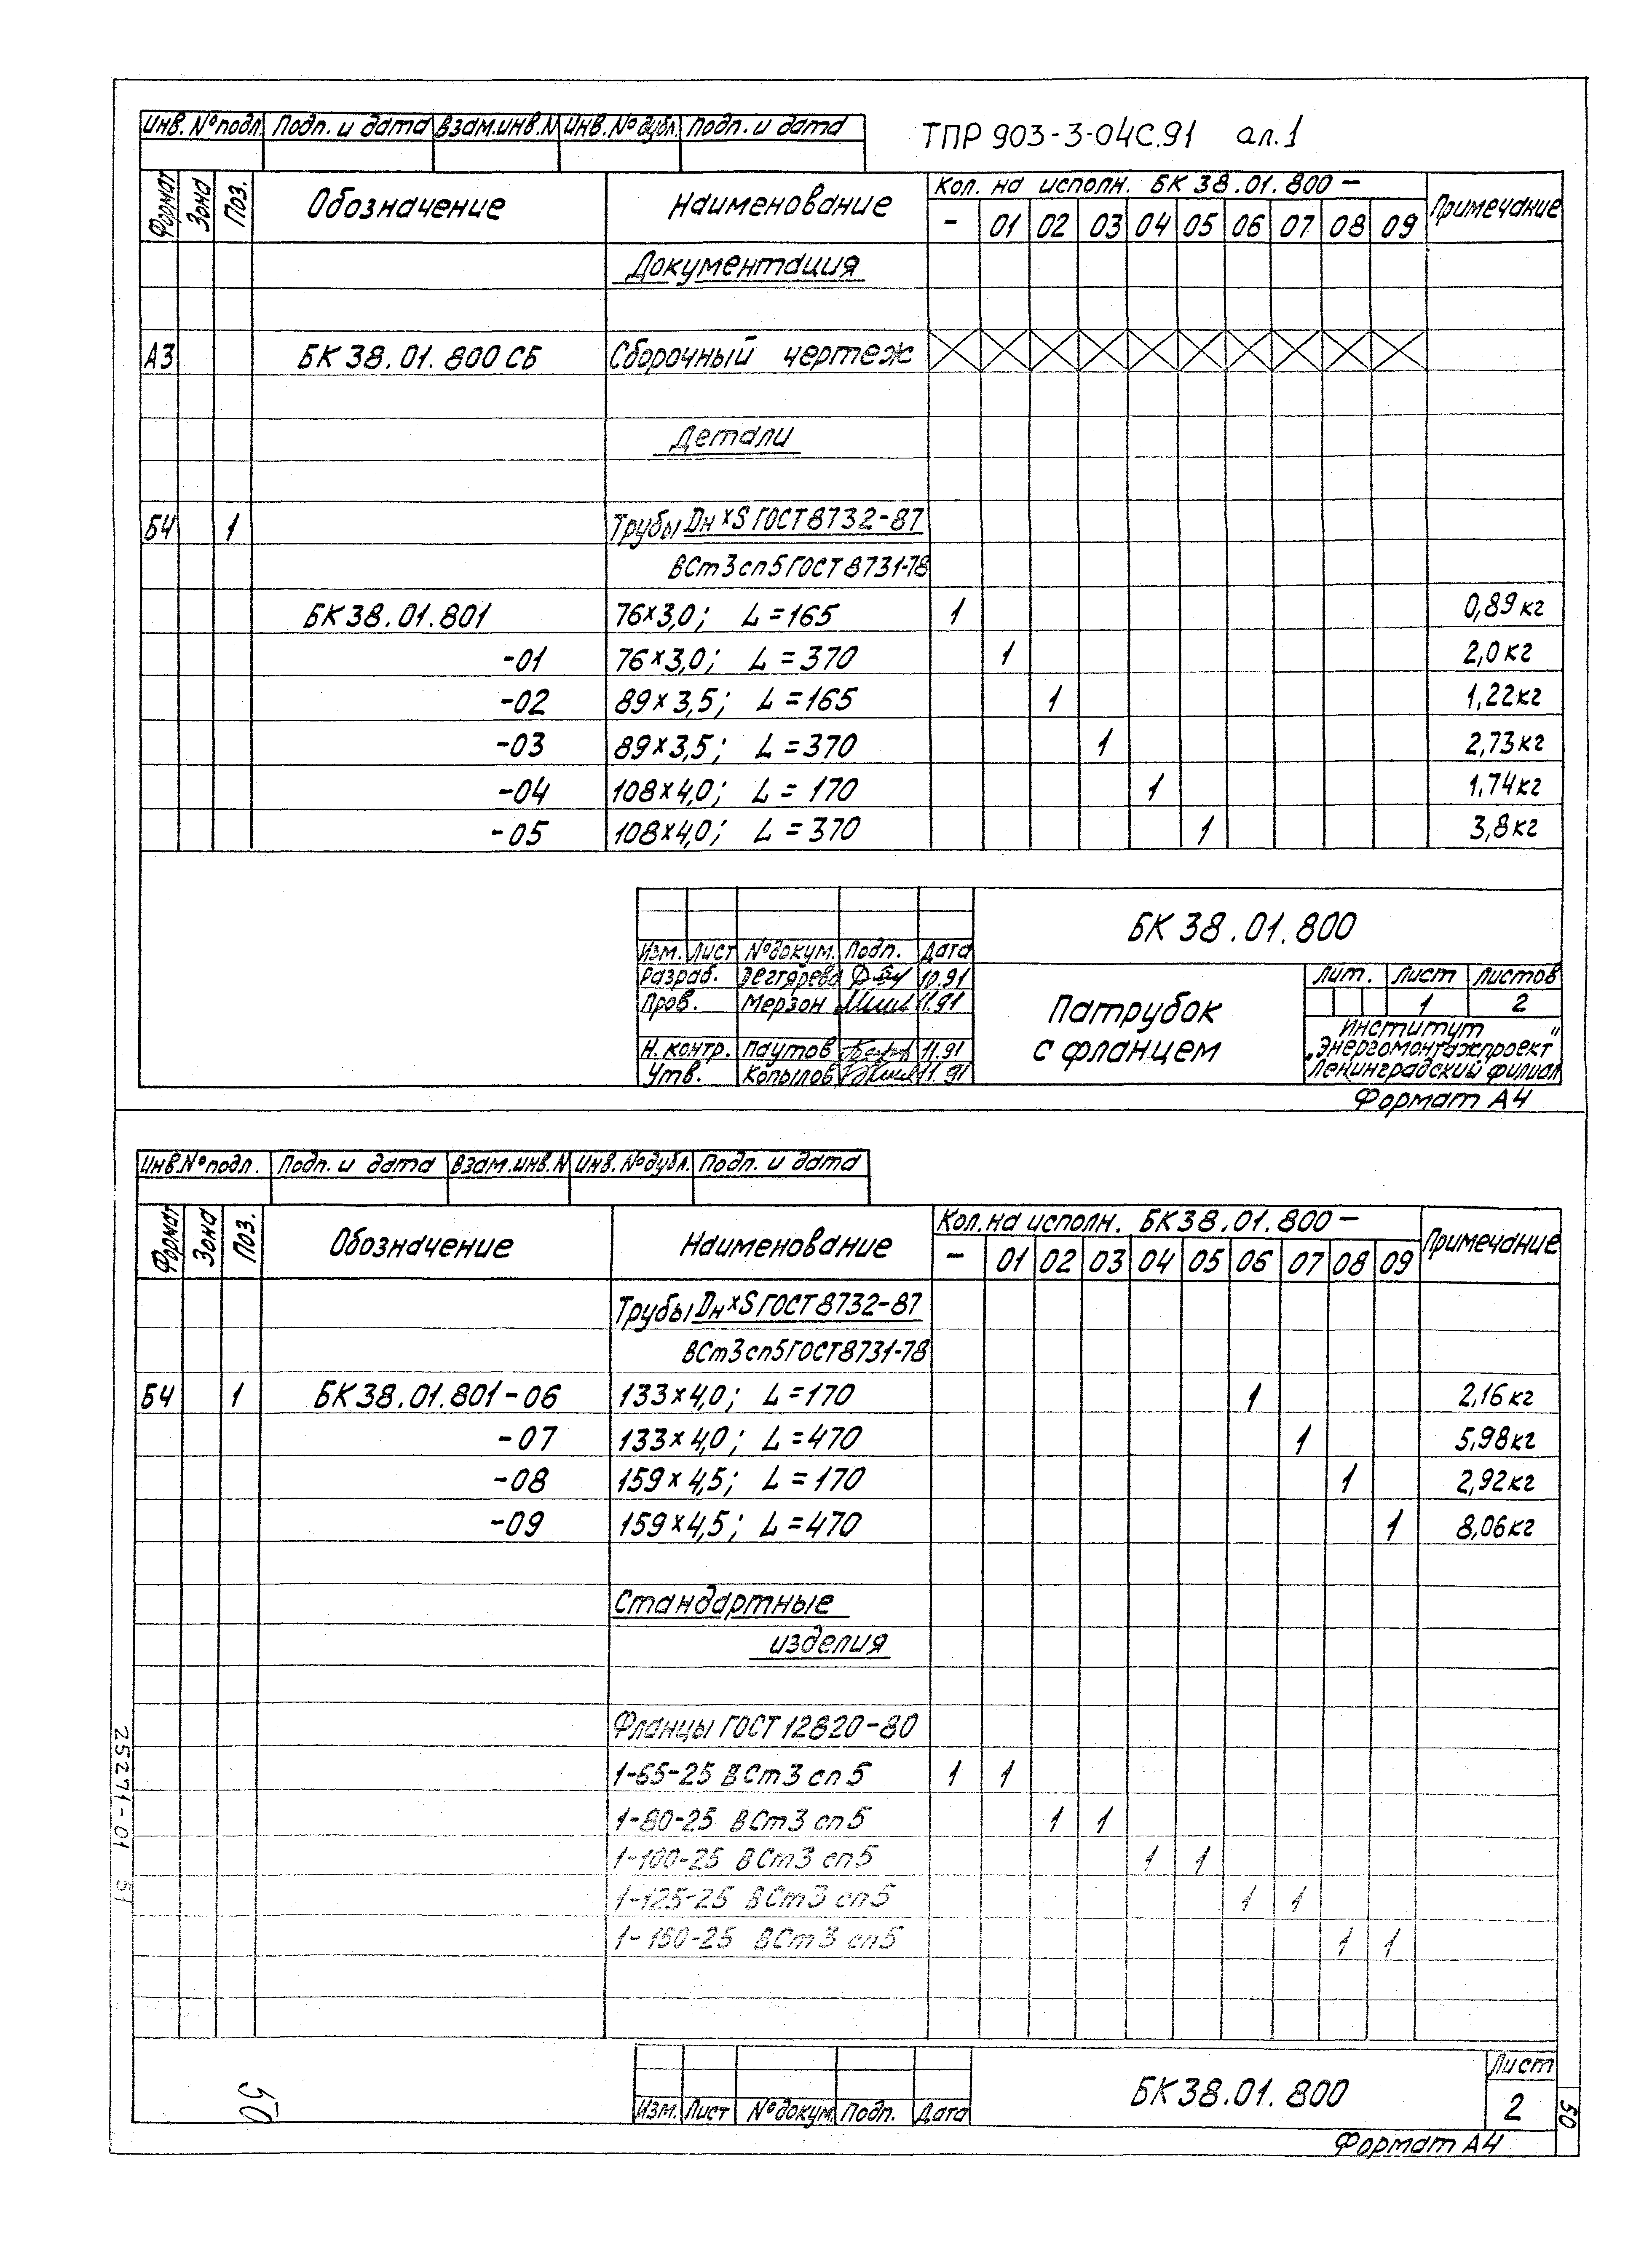 ТПР 903-3-04С.91 ал.1
Инв. № подл. Подп. и дата Взам.инв.N Инв. № дубл. Подп. и дата
Формат Зона Поз. Обозначение Наименование Кол. на исполн. БК 38.01.800 — Примечание
- 01 02 03 04 05 06 07 08 09
Документация
А3 БК 38.01.800 СБ Сборочный чертеж
Детали
Б4 1 Трубы Dн×S ГОСТ 8732-87
ВСт3сп5 ГОСТ 8731-78
БК 38.01.801 76×3,0; L=165 1 0,89 кг
-01 76×3,0; L=370 1 2,0 кг
-02 89×3,5; L=165 1 1,22 кг
-03 89×3,5; L=370 1 2,73 кг
-04 108×4,0; L=170 1 1,74 кг
-05 108×4,0; L=370 1 3,8 кг
БК 38.01.800
Изм. Лист № докум. Подп. Дата
Разраб. Дегтярева 10.91
Пров. Мерзон 11.91
Н. контр. Паутов 11.91
Утв. Копылов 11.91
Патрубок
с фланцем
Лит. Лист Листов
1 2
Институт
„Энергомонтажпроект"
Ленинградский филиал
Формат А4
Инв. № подл. Подп. и дата Взам.инв.N Инв. № дубл. Подп. и дата
Формат Зона Поз. Обозначение Наименование Кол. на исполн. БК 38.01.800 — Примечание
- 01 02 03 04 05 06 07 08 09
Трубы Dн×S ГОСТ 8732-87
ВСт3сп5 ГОСТ 8731-78
Б4 1 БК 38.01.801-06 133×4,0; L=170 1 2,16 кг
-07 133×4,0; L=470 1 5,98 кг
-08 159×4,5; L=170 1 2,92 кг
-09 159×4,5; L=470 1 8,06 кг
Стандартные
изделия
Фланцы ГОСТ 12820-80
1-65-25 ВСт3сп5 1 1
1-80-25 ВСт3сп5 1 1
1-100-25 ВСт3сп5 1 1
1-125-25 ВСт3сп5 1 1
1-150-25 ВСт3сп5 1 1
25271-01 51
50
Изм. Лист № докум. Подп. Дата
БК 38.01.800
Лист
2
50
Формат А4